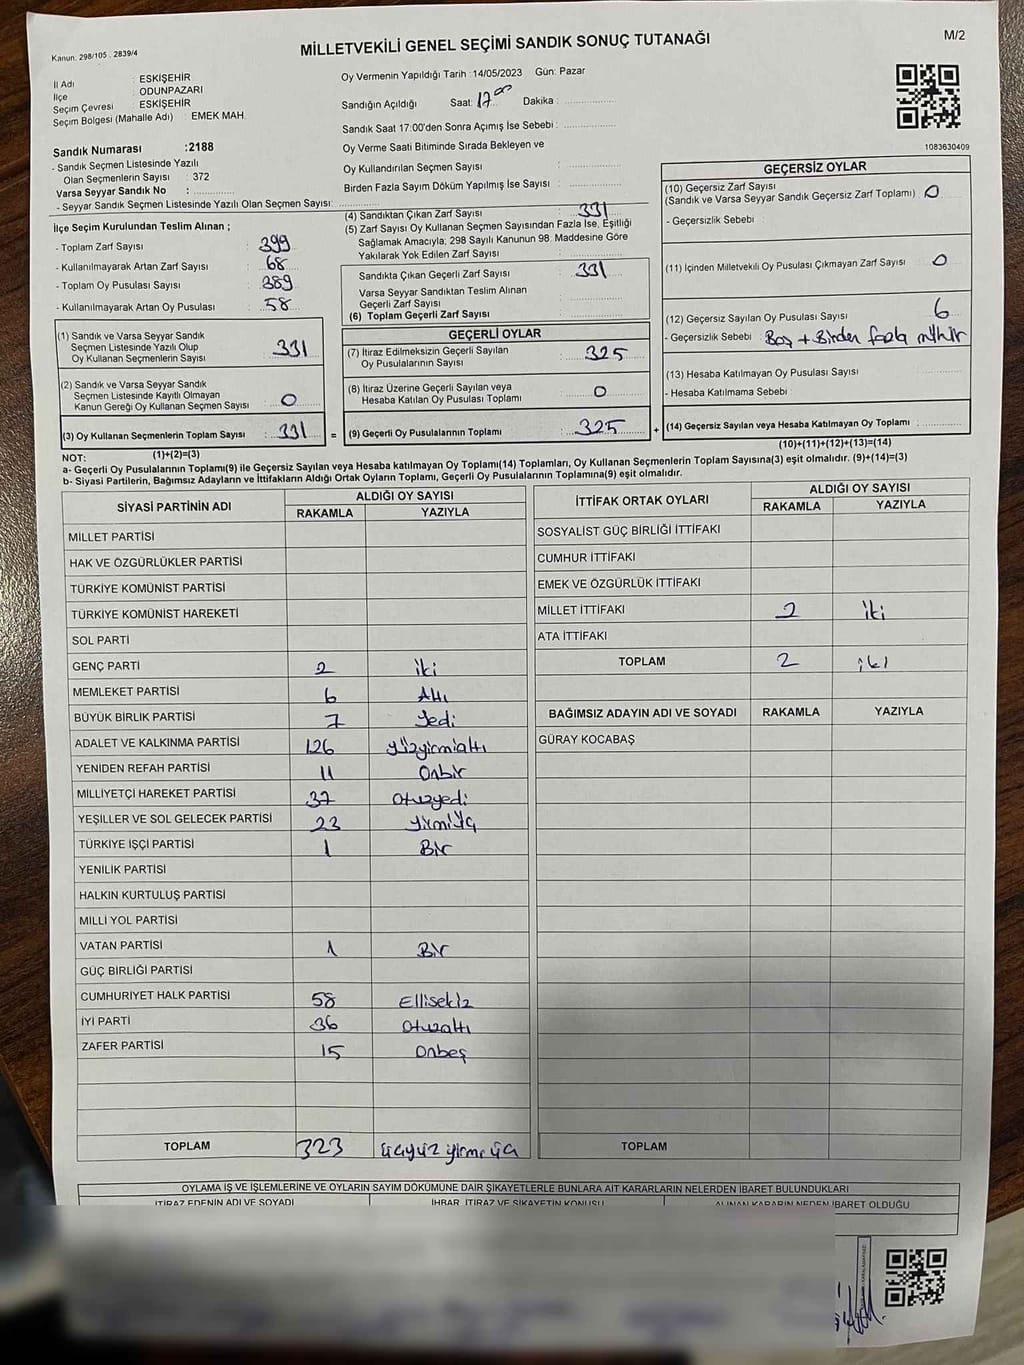 Kanun: 298/105 . 2839/4
MİLLETVEKİLİ GENEL SEÇİMİ SANDIK SONUÇ TUTANAĞI
M/2
İl Adı : ESKİŞEHİR
İlçe : ODUNPAZARI
Seçim Çevresi : ESKİŞEHİR
Seçim Bölgesi (Mahalle Adı) : EMEK MAH.
Oy Vermenin Yapıldığı Tarih : 14/05/2023 Gün: Pazar
Sandığın Açıldığı Saat: 17 00 Dakika :
Sandık Saat 17:00'den Sonra Açımış İse Sebebi :
Oy Verme Saati Bitiminde Sırada Bekleyen ve
Oy Kullandırılan Seçmen Sayısı :
Birden Fazla Sayım Döküm Yapılmış İse Sayısı :
1083630409
Sandık Numarası :2188
- Sandık Seçmen Listesinde Yazılı
Olan Seçmenlerin Sayısı : 372
Varsa Seyyar Sandık No :
- Seyyar Sandık Seçmen Listesinde Yazılı Olan Seçmen Sayısı:
İlçe Seçim Kurulundan Teslim Alınan ;
- Toplam Zarf Sayısı : 399
- Kullanılmayarak Artan Zarf Sayısı : 68
- Toplam Oy Pusulası Sayısı : 389
- Kullanılmayarak Artan Oy Pusulası : 58
(1) Sandık ve Varsa Seyyar Sandık
Seçmen Listesinde Yazılı Olup
Oy Kullanan Seçmenlerin Sayısı : 331
(2) Sandık ve Varsa Seyyar Sandık
Seçmen Listesinde Kayıtlı Olmayan
Kanun Gereği Oy Kullanan Seçmen Sayısı : 0
(3) Oy Kullanan Seçmenlerin Toplam Sayısı : 331 =
(1)+(2)=(3)
(4) Sandıktan Çıkan Zarf Sayısı : 331
(5) Zarf Sayısı Oy Kullanan Seçmen Sayısından Fazla İse, Eşitliği
Sağlamak Amacıyla; 298 Sayılı Kanunun 98. Maddesine Göre
Yakılarak Yok Edilen Zarf Sayısı :
Sandıkta Çıkan Geçerli Zarf Sayısı : 331
Varsa Seyyar Sandıktan Teslim Alınan
Geçerli Zarf Sayısı :
(6) Toplam Geçerli Zarf Sayısı :
GEÇERLİ OYLAR
(7) İtiraz Edilmeksizin Geçerli Sayılan
Oy Pusulalarının Sayısı : 325
(8) İtiraz Üzerine Geçerli Sayılan veya
Hesaba Katılan Oy Pusulası Toplamı : 0
(9) Geçerli Oy Pusulalarının Toplamı : 325 +
GEÇERSİZ OYLAR
(10) Geçersiz Zarf Sayısı
(Sandık ve Varsa Seyyar Sandık Geçersiz Zarf Toplamı) : 0
- Geçersizlik Sebebi :
(11) İçinden Milletvekili Oy Pusulası Çıkmayan Zarf Sayısı : 0
(12) Geçersiz Sayılan Oy Pusulası Sayısı : 6
- Geçersizlik Sebebi : Boş + Birden fazla mühür
(13) Hesaba Katılmayan Oy Pusulası Sayısı :
- Hesaba Katılmama Sebebi :
(14) Geçersiz Sayılan veya Hesaba Katılmayan Oy Toplamı :
(10)+(11)+(12)+(13)=(14)
NOT:
a- Geçerli Oy Pusulalarının Toplamı(9) ile Geçersiz Sayılan veya Hesaba katılmayan Oy Toplamı(14) Toplamları, Oy Kullanan Seçmenlerin Toplam Sayısına(3) eşit olmalıdır. (9)+(14)=(3)
b- Siyasi Partilerin, Bağımsız Adayların ve İttifakların Aldığı Ortak Oyların Toplamı, Geçerli Oy Pusulalarının Toplamına(9) eşit olmalıdır.
SİYASİ PARTİNİN ADI ALDIĞI OY SAYISI
RAKAMLA YAZIYLA
MİLLET PARTİSİ
HAK VE ÖZGÜRLÜKLER PARTİSİ
TÜRKİYE KOMÜNİST PARTİSİ
TÜRKİYE KOMÜNİST HAREKETİ
SOL PARTİ
GENÇ PARTİ 2 iki
MEMLEKET PARTİSİ 6 Altı
BÜYÜK BİRLİK PARTİSİ 7 Yedi
ADALET VE KALKINMA PARTİSİ 126 yüzyirmialtı
YENİDEN REFAH PARTİSİ 11 Onbir
MİLLİYETÇİ HAREKET PARTİSİ 37 Otuzyedi
YEŞİLLER VE SOL GELECEK PARTİSİ 23 yirmiüç
TÜRKİYE İŞÇİ PARTİSİ 1 Bir
YENİLİK PARTİSİ
HALKIN KURTULUŞ PARTİSİ
MİLLİ YOL PARTİSİ
VATAN PARTİSİ 1 Bir
GÜÇ BİRLİĞİ PARTİSİ
CUMHURİYET HALK PARTİSİ 58 Ellisekiz
İYİ PARTİ 36 Otuzaltı
ZAFER PARTİSİ 15 Onbeş
TOPLAM 323 üçyüz yirmi üç
İTTİFAK ORTAK OYLARI ALDIĞI OY SAYISI
RAKAMLA YAZIYLA
SOSYALİST GÜÇ BİRLİĞİ İTTİFAKI
CUMHUR İTTİFAKI
EMEK VE ÖZGÜRLÜK İTTİFAKI
MİLLET İTTİFAKI 2 iki
ATA İTTİFAKI
TOPLAM 2 iki
BAĞIMSIZ ADAYIN ADI VE SOYADI RAKAMLA YAZIYLA
GÜRAY KOCABAŞ
TOPLAM
OYLAMA İŞ VE İŞLEMLERİNE VE OYLARIN SAYIM DÖKÜMÜNE DAİR ŞİKAYETLERLE BUNLARA AİT KARARLARIN NELERDEN İBARET BULUNDUKLARI
İTİRAZ EDENİN ADI VE SOYADI İHBAR, İTİRAZ VE ŞİKAYETİN KONUSU ALINAN KARARIN NEDEN İBARET OLDUĞU